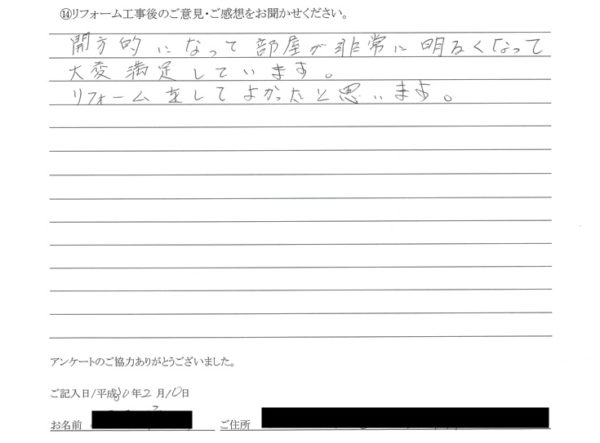 ⑭リフォーム工事後のご意見・ご感想をお聞かせください。
開方的になって部屋が非常に明るくなって
大変満足しています。
リフォームをしてよかったと思います。
アンケートのご協力ありがとうございました。
ご記入日/平成30年2月10日
お名前 ご住所